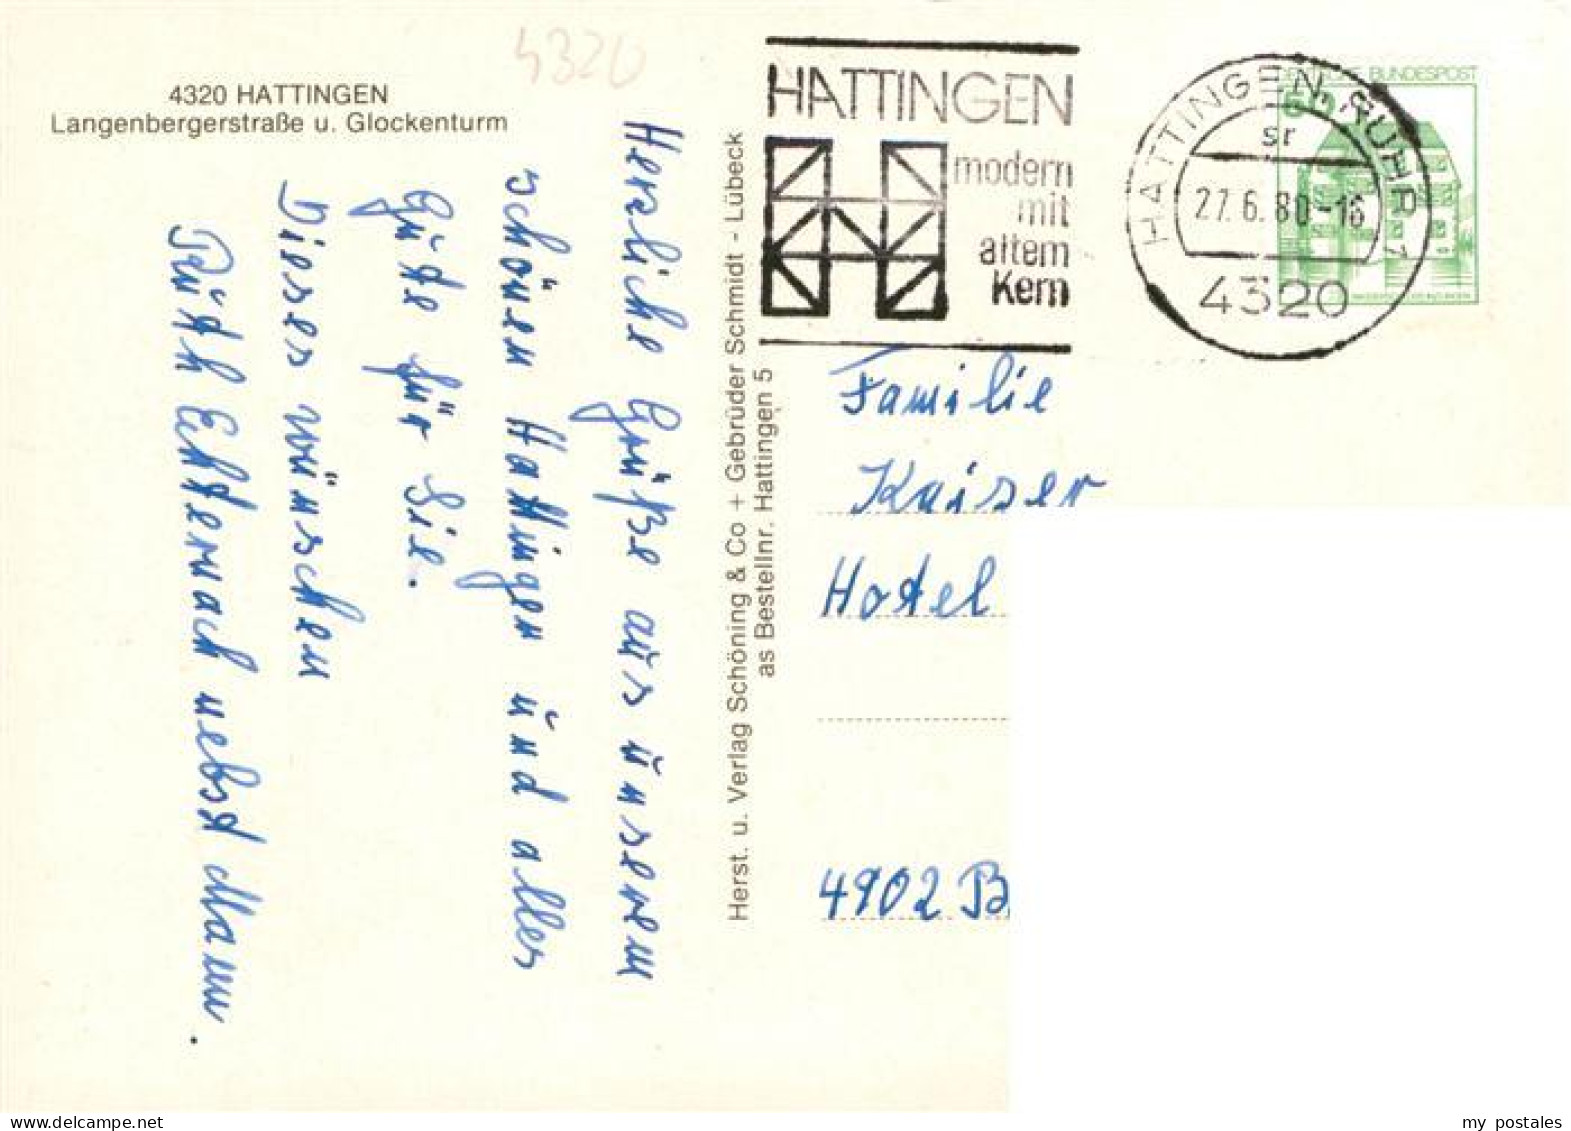 4320
4320 HATTINGEN
Langenbergerstraße u. Glockenturm
Herzliche Grüße aus ŭnserem
schönen Hattingen ŭnd alles
Gŭte für Sie.
Dieses wünschen
Rŭth Echternach nebst Mann.
Herst. u. Verlag Schöning & Co + Gebrüder Schmidt - Lübeck
as Bestellnr. Hattingen 5
HATTINGEN
modern
mit
altem
Kern
HATTINGEN, RUHR 1
sr
27.6.80-16
4320
DEUTSCHE BUNDESPOST
50
Familie
Kaiser
Hotel
4902 B
my postales
delcampe.net